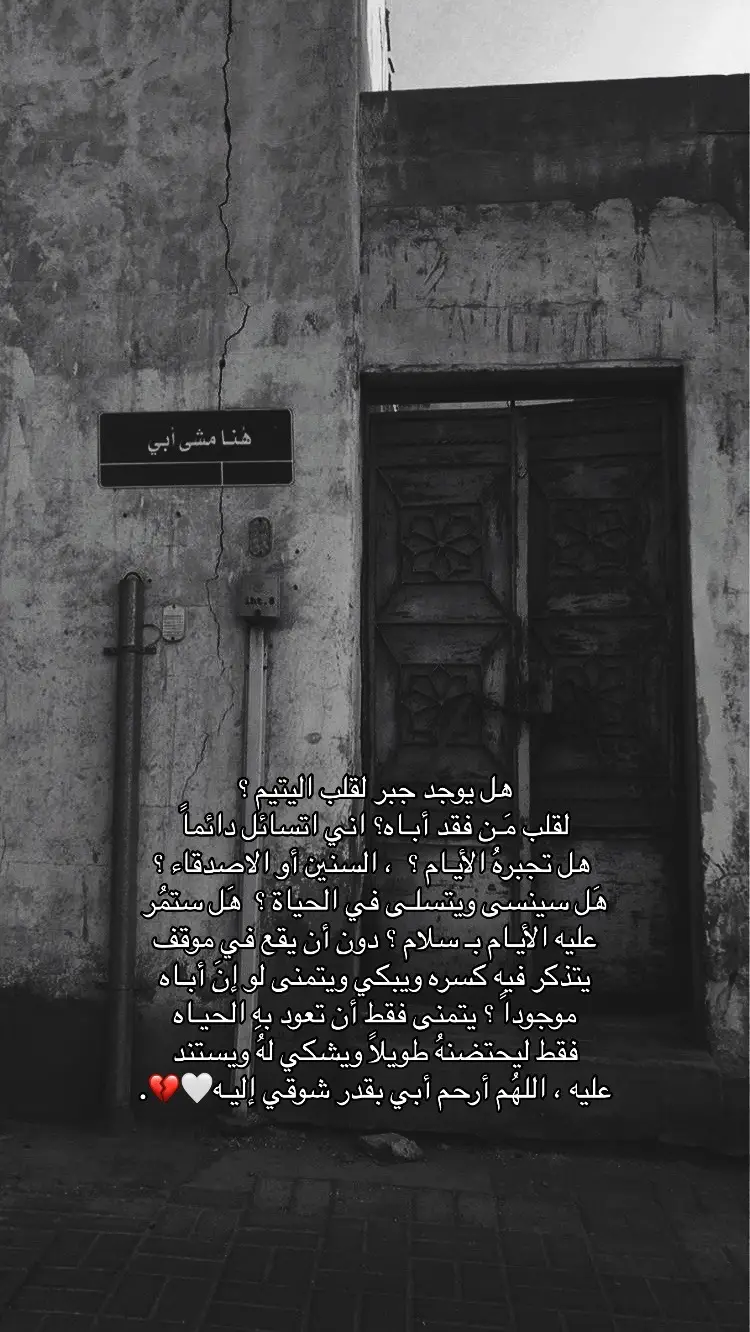 هُنا مشى أبي
هل يوجد جبر لقلب اليتيم ؟
لقلب مَـن فقد أبـاه؟ اني اتسائل دائماً
هل تجبرهُ الأيـام ؟ ، السنين أو الاصدقاء ؟
هَل سينسى ويتسلـى في الحياة ؟ هَل ستمُر
عليه الأيـام بـ سلام ؟ دون أن يقع فـي موقف
يتذكر فيه كسره ويبكي ويتمنى لو إنَ أبـاه
موجوداً ؟ يتمنى فقط أن تعود بهِ الحيـاه
فقط ليحتضنهُ طويلاً ويشكي لهُ ويستند
عليه ، اللهُم أرحم أبي بقدر شوقي إليـه🤍💔.